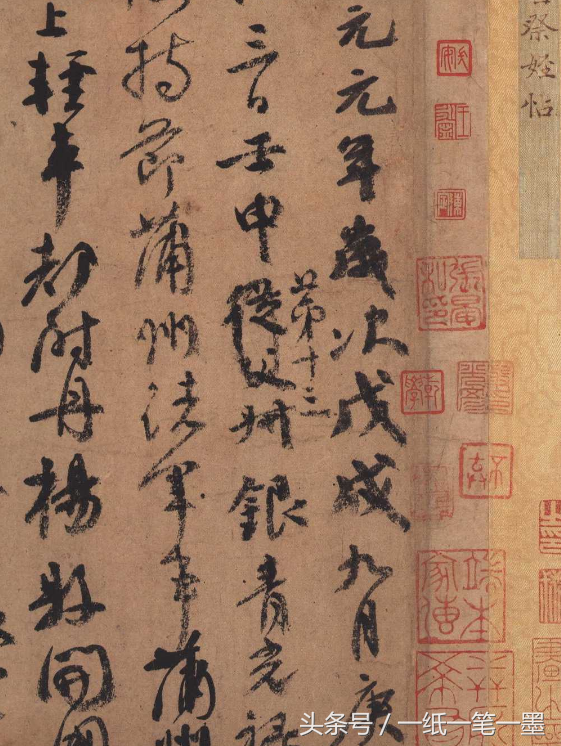 祭姪帖
元元年歲次戊戌九月庚
三日壬申從父第十三叔銀青光祿
持節蒲州諸軍事蒲州
上輕車都尉丹楊縣開國
头条号 / 一纸一笔一墨